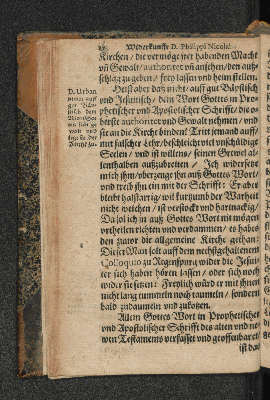 Wiederkunfft D. Philippi Nicolai
Kirchen / die vermöge irer habenden Macht
vñ Gewalt / authoritet vñ ansehen / den auß-
schlag zu geben / frey lassen vnd heimstellen.
Heist aber das nicht / auff gut Bäpstisch
vnd Jesuitisch / dem Wort Gottes in Pro-
phetischer vnd Apostolischer Schrifft / die o-
berste authoritet vnd Gewalt nehmen / vnd
sie an die Kirche binden? Tritt jemand auff /
mit falscher Lehr / beschleicht viel vnschüldige
Seelen / vnd ist willens / seinen Grewel al-
lenthalben außzubreiten / Ich widersetze
mich ihm / vberzeuge ihn auß Gottes Wort /
vnd treib ihn ein mit der Schrifft: Er aber
bleibt halßstarrig / wil kurtzumb der Warheit
nicht weichen / ist verstockt vnd hartneckig /
Da sol ich in auß Gottes Wort nit mögen
vrtheilen richten vnd verdammen / es habes
den zuuor die allgemeine Kirche gethan?
Dieser Man solt auff dem nechstgehaltenem
Colloquio zu Regenspurg wider die Jesui-
ter sich haben hören lassen / oder sich noch
wider sie setzen: Freylich würd er mit ihnen
nicht lang tummeln noch taumeln / sondern
bald
Allein Gottes Wort in Prophetischer
vnd Apostolischer Schrifft des alten vnd ne-
wen Testaments verfasset vnd geoffenbaret /
ist das
D. Urban
nimet auff
gut Bäp-
stisch dem
Wort Got-
tes sein ge-
walt vnd
legt sie der
Kirche zu.